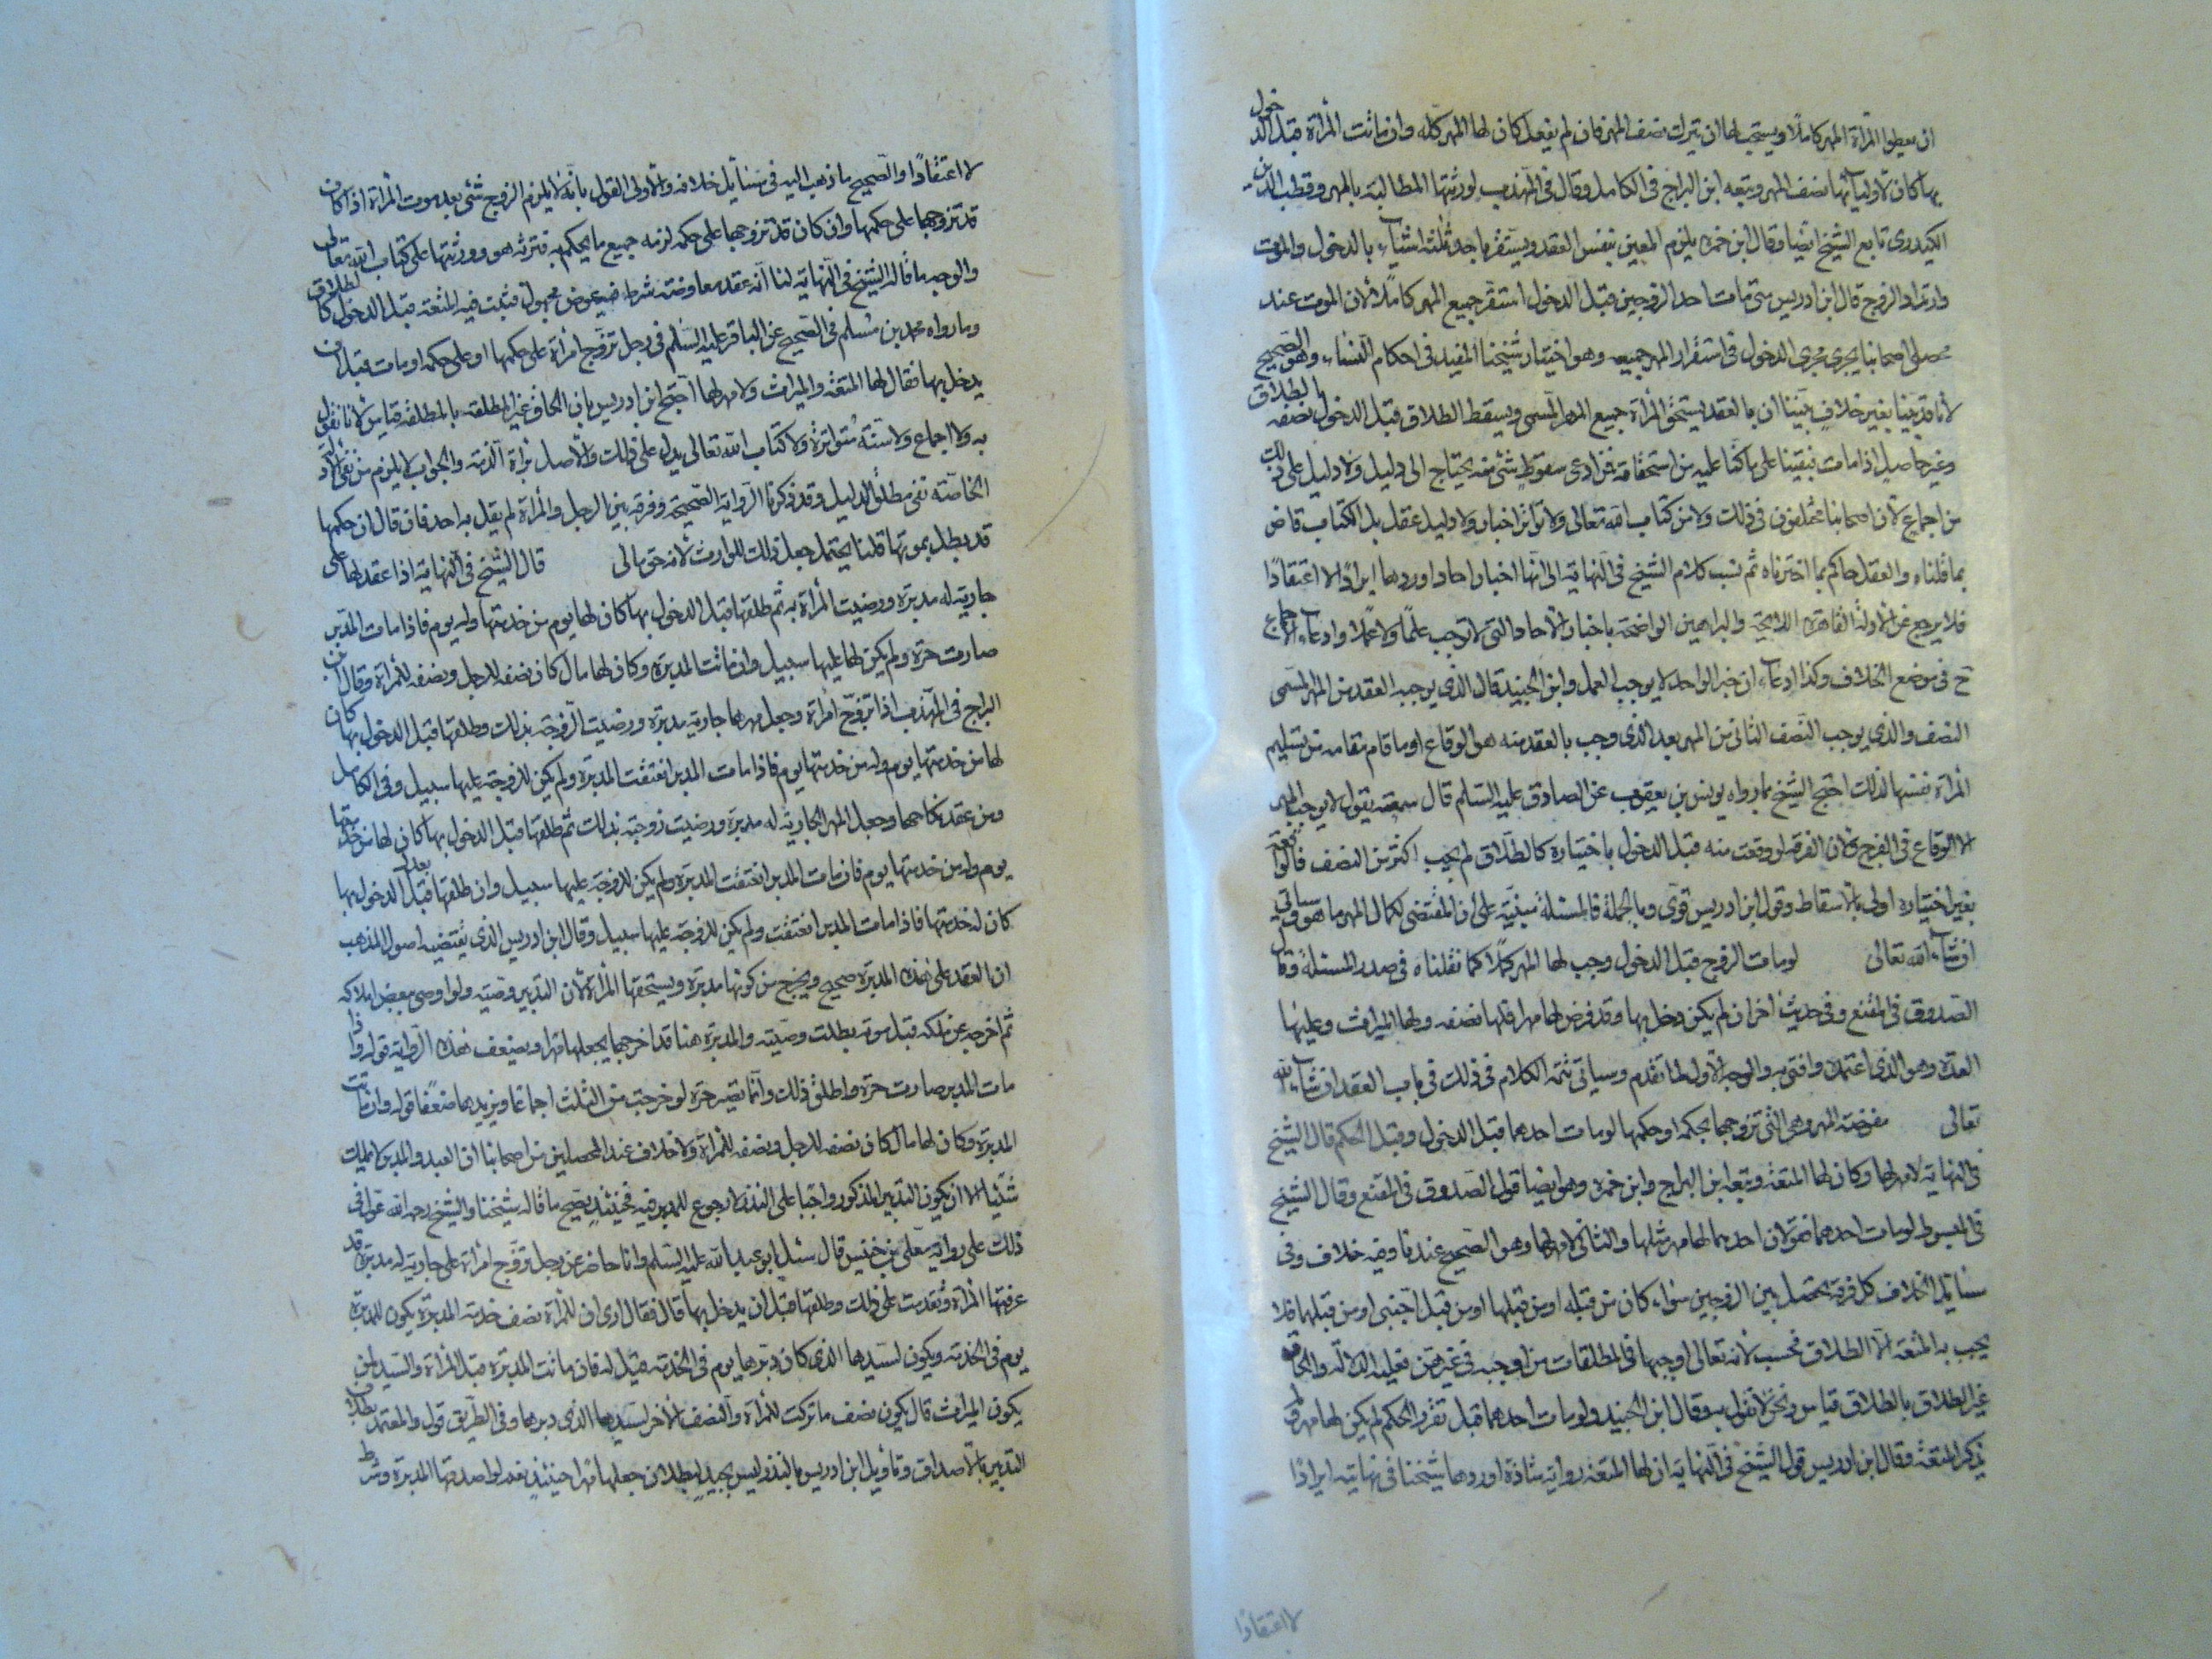 ان يعطوا المرأة المهر كاملا ويستحب لها ان تترك نصف المهر فان لم يفعل كان لها المهر كله وان ماتت المرأة قبل الدخول
بها كان لأوليائها نصف المهر وتبعه ابن البراج في الكامل وقال في المهذب لورثتها المطالبة بالمهر وقطب الدين
الكيدرى تابع الشيخ ايضا وقال ابن حمزه يلزم المعين بنفس العقد ويستقر باحد ثلثة اشياء بالدخول والموت
وارتداد الزوج قال ابن ادريس متى مات احد الزوجين قبل الدخول استقر جميع المهر كاملا لان الموت عند
محصلى اصحابنا يجرى مجرى الدخول فى استقرار المهر جميعه وهو اختيار شيخنا المفيد فى احكام النساء وهو الصحيح
لأنا قد بينا بغير خلاف بيننا ان بالعقد يستحق المرأة جميع المهر المسمى ويسقط الطلاق قبل الدخول نصفه والطلاق
وغير حاصل اذا مات فبقينا على ما كنا عليه من استحقاقه فمن ادعى سقوط شئ منه يحتاج الى دليل ولا دليل على ذلك
من اجماع لأن اصحابنا مختلفون فى ذلك ولا من كتاب الله تعالى ولا تواتر اخبار ولا دليل عقل بل الكتاب قاض
بما قلناه والعقل حاكم بما اخترناه ثم نسب كلام الشيخ فى النهاية الى انها اخبار احاد اوردها ايرادا لا اعتقادا
فلا يرجع عن الأدلة القاهرة اللايحة والبراهين الواضحة باخبار الأحاد التى لا توجب علما ولا عملا وادعاء الأجماع
تح فى موضع الخلاف وكذا ادعاء ان خبر الواحد لا يوجب العمل وابن الجنيد قال الذى يوجبه العقد من المهر المسمى
النصف والذى يوجب النصف الثانى من المهر بعد الذى وجب بالعقد منه هو الوقاع او ما قام مقامه من تسليم
المرأة نفسها لذلك احتج الشيخ بما رواه يونس بن يعقوب عن الصادق عليه السلم قال سمعته يقول لا يوجب المهر
الا الوقاع فى الفرج ولأن الفرقة لو وقعت منه قبل الدخول باختياره كالطلاق لم يجب اكثر من النصف فالواقعة
بغير اختياره اولى بالأسقاط وقول ابن ادريس قوى وبالجملة فالمسئلة مبنية على أن المقتضى لكمال المهر ما هو وسيأتى
انشاء الله تعالى لو مات الزوج قبل الدخول وجب لها المهر كملا كما نقلناه فى صدر المسئلة وقال
الصدوق فى المقنع وفى حديث اخر ان لم يكن دخل بها وقد فرض لها مهرا فلها نصفه ولها الميراث وعليها
العدة وهو الذى اعتمده وافتى به والوجه الأول لما تقدم وسيأتى تتمة الكلام فى ذلك فى باب العقد انشاء الله
تعالى مفوضة المهر وهى التى تزوجها بحكمه او حكمها لو مات احدهما قبل الدخول وقبل الحكم قال الشيخ
فى النهاية لا مهر لها وكان لها المتعة وتبعه ابن البراج وابن حمزه وهو ايضا قول الصدوق فى المقنع وقال الشيخ
فى المبسوط لو مات احدهما فقولان احدهما لها مهر مثلها والثانى لا مهر لها وهو الصحيح عندنا وفيه خلاف وفى
مسائل الخلاف كل فرقة يحصل بين الزوجين سواء كان من قبله او من قبلها او من قبل اجنبى او من قبلهما فلا
يجب به المتعة الا الطلاق فحسب لأنه تعالى اوجبها فى المطلقات من اوجبه فى غيرهن فعليه الدلالة والحاق
غير الطلاق بالطلاق قياس ونحن لا نقول به وقال ابن الجنيد ولو مات احدهما قبل تقرر الحكم لم يكن لها مهر ولم
يذكر المتعة وقال ابن ادريس قول الشيخ فى النهاية ان لها المتعة رواية شاذة اوردها شيخنا فى نهايته ايرادا
لا اعتقادا
لا اعتقادا والصحيح ما ذهب اليه فى مسائل خلافه والأولى القول بأنه لا يلزم الزوج شئ بعد موت المرأة اذا كان
قد تزوجها على حكمها وان كان قد تزوجها على حكمه لزمه جميع ما يحكم به فترثه هو وورثتها على كتاب الله تعالى
والوجه ما قاله الشيخ فى النهاية لنا انه عقد معاوضة شرط فيه عوض مجهول فيثبت فيه المتعة قبل الدخول كالطلاق
وما رواه محمد بن مسلم فى الصحيح عن الباقر عليه السلم فى رجل تزوج امرأة على حكمها او على حكمه او مات قبل ان
يدخل بها فقال لها المتعة والميراث ولا مهر لها احتج ابن ادريس بان الحاق غير المطلقة بالمطلقة قياس لأنا نقول
به ولا اجماع ولا سنة متواترة ولا كتاب الله تعالى يدل على ذلك والأصل براة الذمة والجواب لا يلزم من نفى الأدلة
الخاصة نفى مطلق الدليل وقد ذكرنا الرواية الصحيحة وفرقه بين الرجل والمرأة لم يقل به احد فان قال ان حكمها
قد بطل بموتها قلنا يحتمل جعل ذلك للوارث لأنه حق مالى قال الشيخ فى النهاية اذا عقد لها على
جارية له مدبرة ورضيت المرأة به ثم طلقها قبل الدخول بها كان لها يوم من خدمتها وله يوم فاذا مات المدبر
صارت حرة ولم يكن لها عليها سبيل وان ماتت المدبرة وكان لها مال كان نصفه للرجل ونصفه للمرأة وقال ابن
البراج فى المهذب اذا تزوج امرأة وجعل مهرها جارية مدبرة ورضيت الزوجة بذلك وطلقها قبل الدخول بها كان
لها من خدمتها يوم وله من خدمتها يوم فاذا مات المدبر انعتقت المدبرة ولم يكن للزوجة عليها سبيل وفى الكامل
ومن عقد نكاحها وجعل المهر الجارية له مدبرة ورضيت زوجته بذلك ثم طلقها قبل الدخول بها كان لها من خدمتها
يوم وله من خدمتها يوم فان مات المدبر انعتقت المدبرة ولم يكن للزوجة عليها سبيل وان طلقها قبل بعد الدخول بها
كان له خدمتها فاذا مات المدبر انعتقت ولم يكن للزوجة عليها سبيل وقال ابن ادريس الذى يقتضيه اصول المذهب
ان العقد على هذه المدبرة صحيح ويخرج من كونها مدبرة ويستحقها المرأة لأن التدبير وصية ولو اوصى ببعض املاكه
ثم اخرجه عن ملكه قبل موته بطلت وصيته والمدبرة هنا قد اخرجها بجعلها مهرا ويضعف هذه الرواية قوله واذا
مات المدبر صارت حرة واطلق ذلك وانما تصير حرة لو خرجت من الثلث اجماعا ويزيدها ضعفا قوله وان ماتت
المدبرة وكان لها مال كان نصفه للرجل ونصفه للمرأة ولا خلاف عند المحصلين من اصحابنا ان العبد والمدبر لا يملك
شيئا الا ان يكون التدبير المذكور واجبا على النذر لا رجوع للمدبر فيه فحينئذ يصح ما قاله شيخنا والشيخ رحمه الله عول فى
ذلك على رواية معلى بن خنيس قال سئل ابو عبد الله عليه السلم وانا حاضر عن رجل تزوج امرأة على جارية له مدبرة قد
عرفتها المرأة وتقدمت على ذلك وطلقها قبل ان يدخل بها قال فقال ارى ان للمرأة نصف خدمة المدبرة يكون للمدبرة
يوم فى الخدمة ويكون لسيدها الذى كان دبرها يوم فى الخدمة قيل له فان ماتت المدبرة قبل المرأة والسيد لمن
يكون الميراث قال يكون نصف ما تركت للمرأة والنصف الأخر لسيدها الذى دبرها وفى الطريق قول والمعتمد بطلان
التدبير بالأصداق وتأويل ابن ادريس بالنذر ليس بجيد لبطلان جعلها مهرا حينئذ نعم لو اصدقها المدبرة وشرط